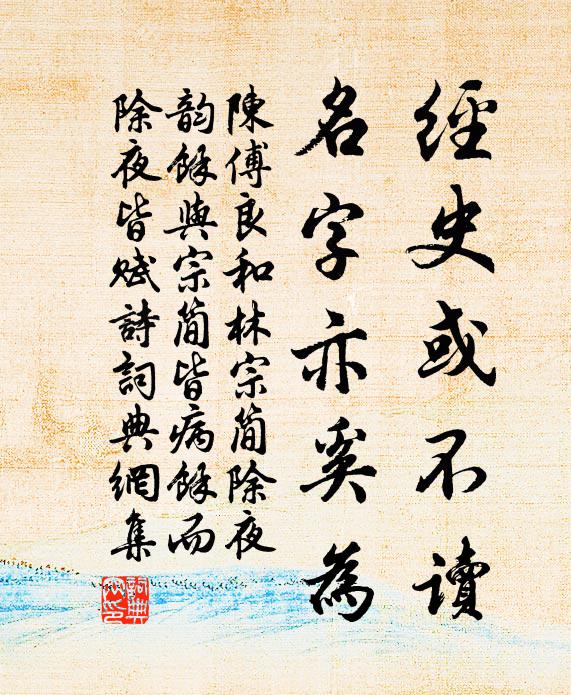 經史或不讀
名字亦奚為
陳傅良和林宗簡除夜
韵餘與宗簡皆病餘而
除夜皆賦詩詞典網集